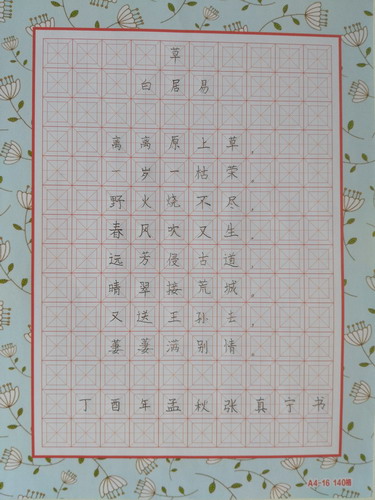 草
白居易
离离原上草，
一岁一枯荣。
野火烧不尽，
春风吹又生。
远芳侵古道，
晴翠接荒城。
又送王孙去，
萋萋满别情。
丁酉年孟秋张真宁书
A4-16 140格